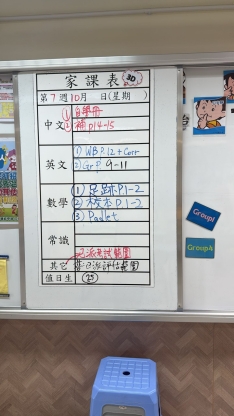 家課表 30
第7週10月 日(星期 )
中文
① 自學冊
② 補p14-15
英文
① WB P.12 + Corr
② Gr P. 9-11
數學
① 足跡P.1-2
② 校本P.1-2
③ Padlet
常識
已派考試範圍
其它
已派評估範圍
值日生 25
Group1
Group4